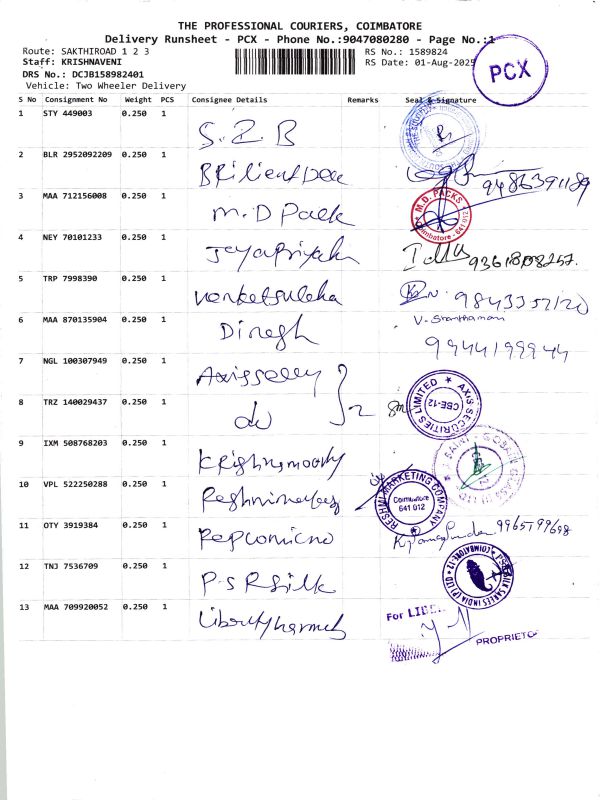 THE PROFESSIONAL COURIERS, COIMBATORE
Delivery Runsheet - PCX - Phone No.:9047080280 - Page No.:1
Route: SAKTHIROAD 1 2 3
RS No.: 1589824
Staff: KRISHNAVENI
RS Date: 01-Aug-2025
DRS No.: DCJB158982401
Vehicle: Two Wheeler Delivery
PCX
S No Consignment No Weight PCS Consignee Details Remarks Seal & Signature
1 STY 449003 0.250 1 S.Z.B
2 BLR 2952092209 0.250 1 9486391189
3 MAA 712156008 0.250 1 M.D Pack
M.D. PACKS
Coimbatore - 641 012
4 NEY 70101233 0.250 1 Jayapriyah
5 TRP 7998390 0.250 1 Venketsuleka
6 MAA 870135904 0.250 1 Dinesh
9944199944
7 NGL 100307949 0.250 1
8 TRZ 140029437 0.250 1 do } 2
AXIS SECURITIES LIMITED
CBE-12
9 IXM 508768203 0.250 1 Krishnamoorthy
SAINT - GOBAIN GLASS
10 VPL 522250288 0.250 1
RESHMI MARKETING COMPANY
Coimbatore
641 012
11 OTY 3919384 0.250 1 Repcomicno
12 TNJ 7536709 0.250 1 P.S R Silk
PSR SILK SAREES INDIA (P) LTD
COIMBATORE-12
13 MAA 709920052 0.250 1
For LIBER
PROPRIETOR